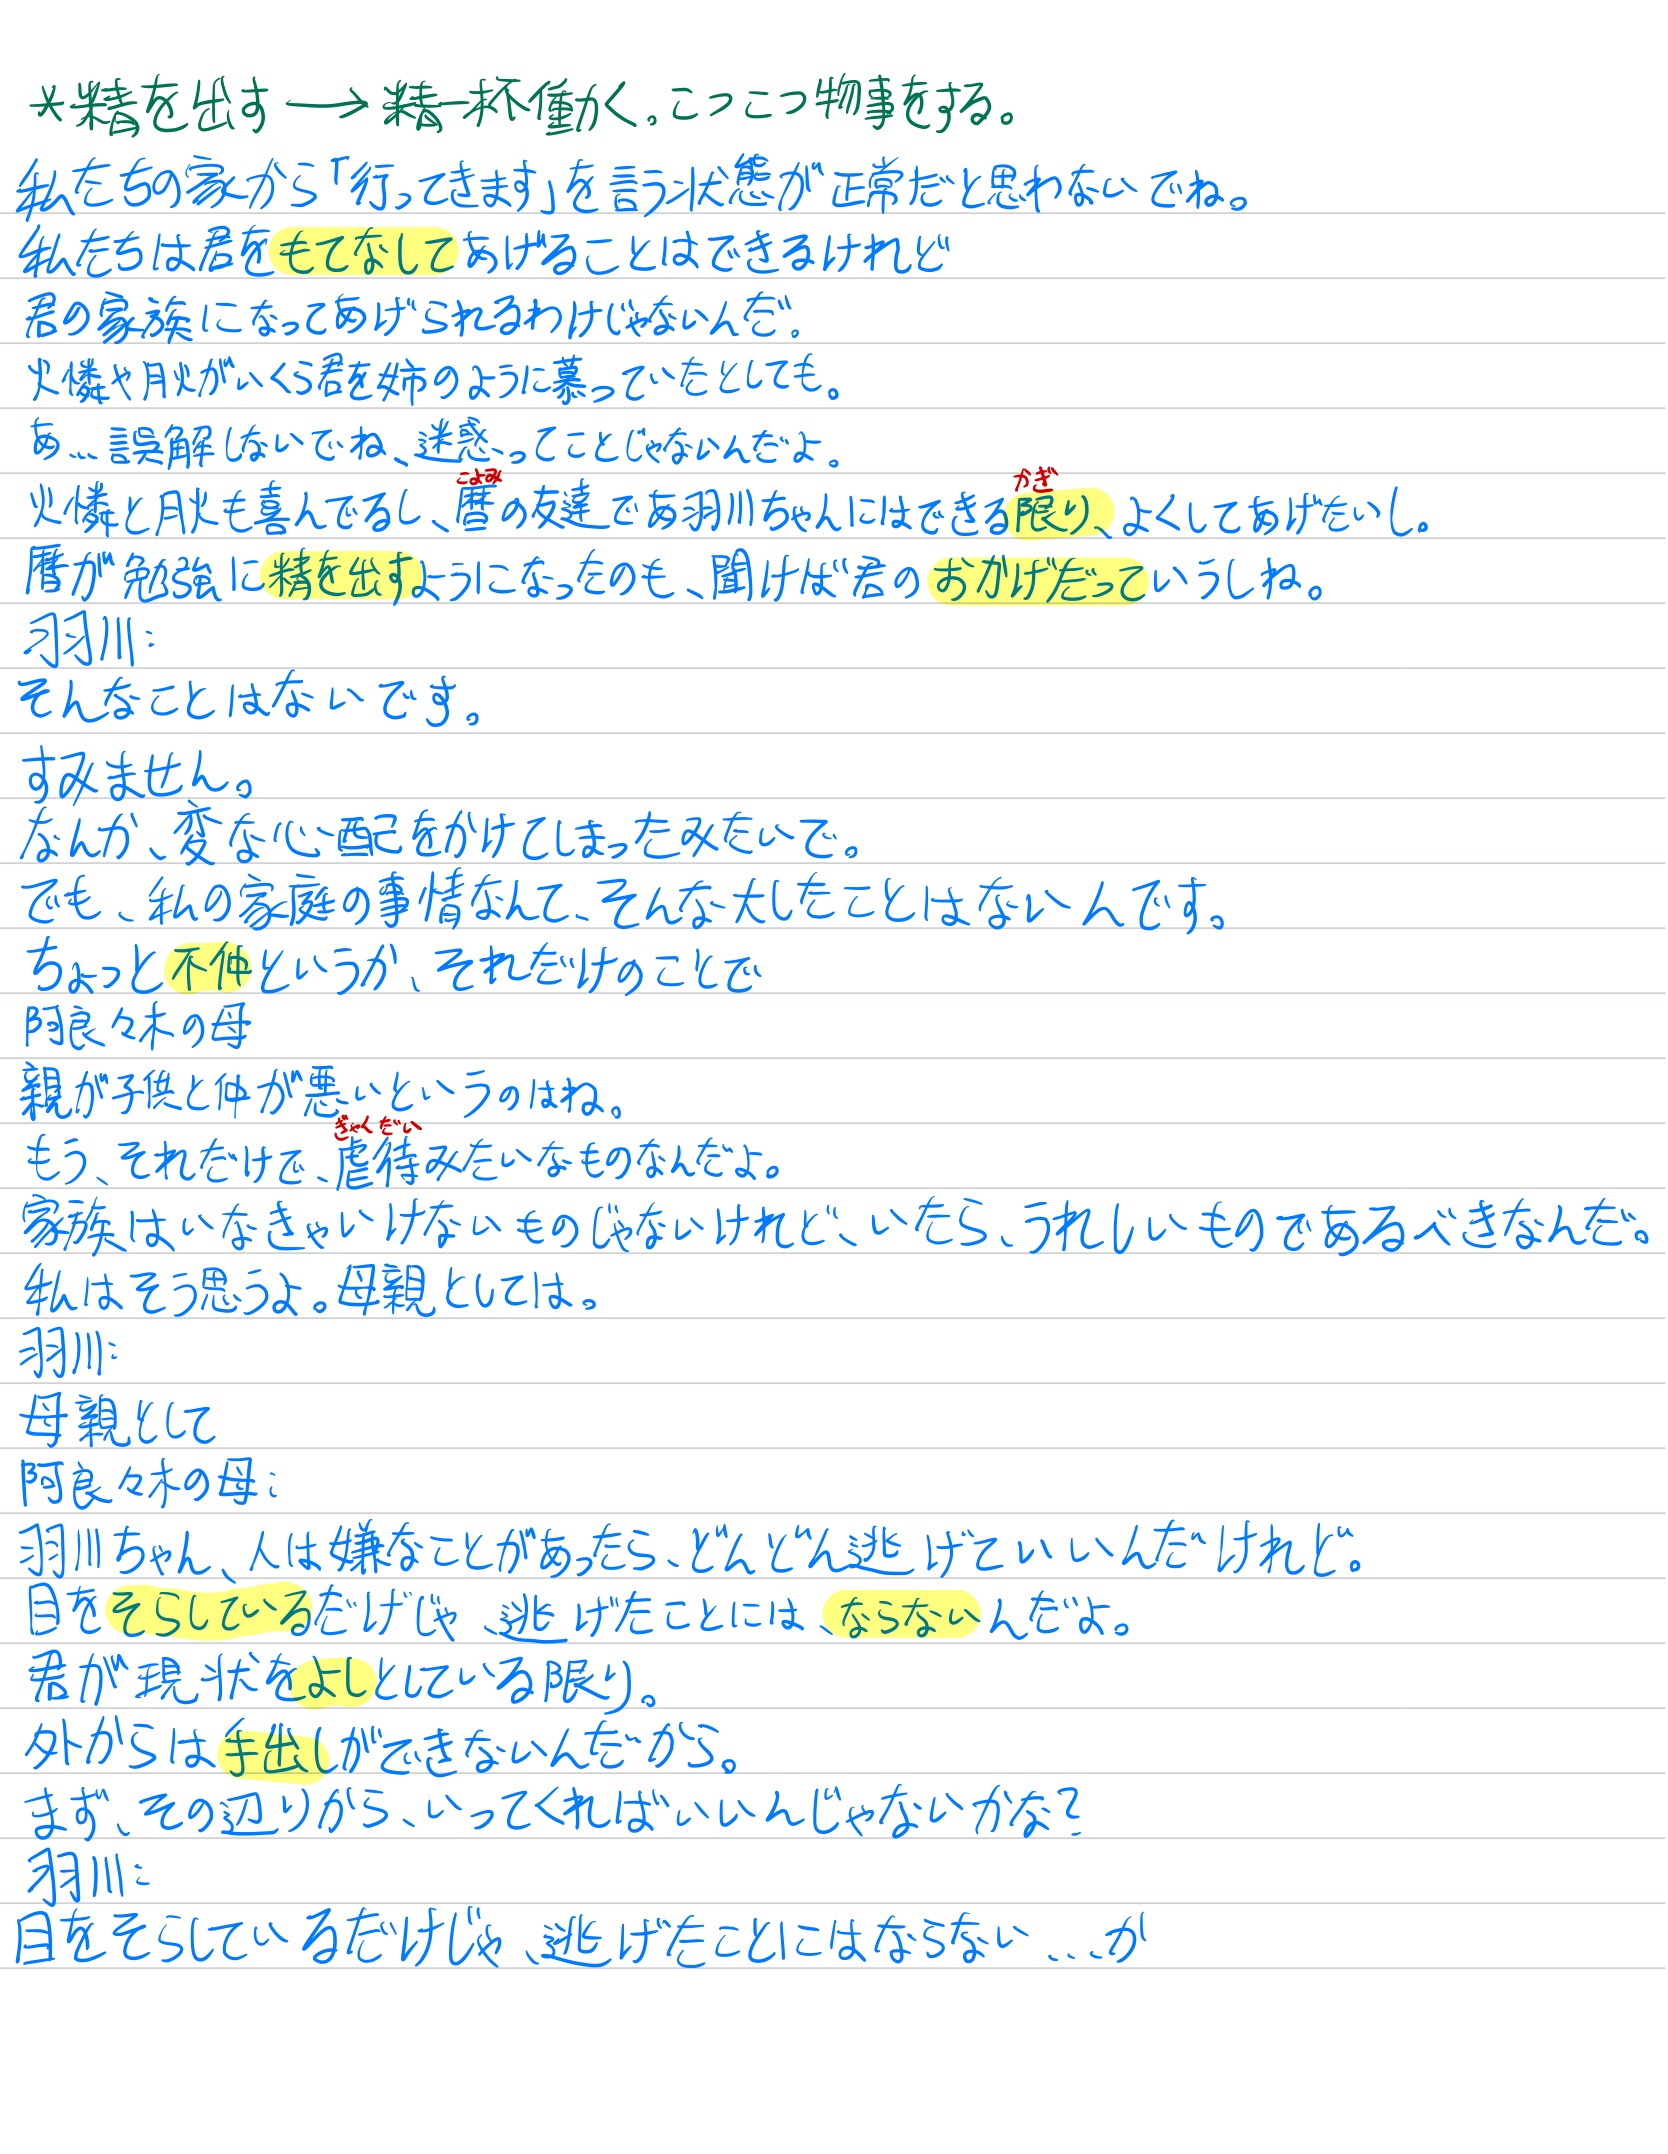 *精を出す→精一杯働く。こつこつ物事をする。
私たちの家から「行ってきます」を言う状態が正常だと思わないでね。
私たちは君をもてなしてあげることはできるけれど
君の家族になってあげられるわけじゃないんだ。
火憐や月火がいくら君を姉のように慕っていたとしても。
あ…誤解しないでね、迷惑ってことじゃないんだよ。
こよみ かぎ
火憐と月火も喜んでるし、暦の友達であ羽川ちゃんにはできる限り、よくしてあげたいし。
暦が勉強に精を出すようになったのも、聞けば君のおかげだっていうしね。
羽川:
そんなことはないです。
すみません。
なんか、変な心配をかけてしまったみたいで。
でも、私の家庭の事情なんて、そんな大したことはないんです。
ちょっと不仲というか、それだけのことで
阿良々木の母
親が子供と仲が悪いというのはね。
ぎゃくだい
もう、それだけで、虐待みたいなものなんだよ。
家族はいなきゃいけないものじゃないけれど、いたら、うれしいものであるべきなんだ。
私はそう思うよ。母親としては。
羽川:
母親として
阿良々木の母:
羽川ちゃん、人は嫌なことがあったら、どんどん逃げていいんだけれど。
目をそらしているだけじゃ、逃げたことには、ならないんだよ。
君が現状をよしとしている限り。
外からは手出しができないんだから。
まず、その辺りから、いってくればいいんじゃないかな?
羽川:
目をそらしているだけじゃ、逃げたことにはならない…か